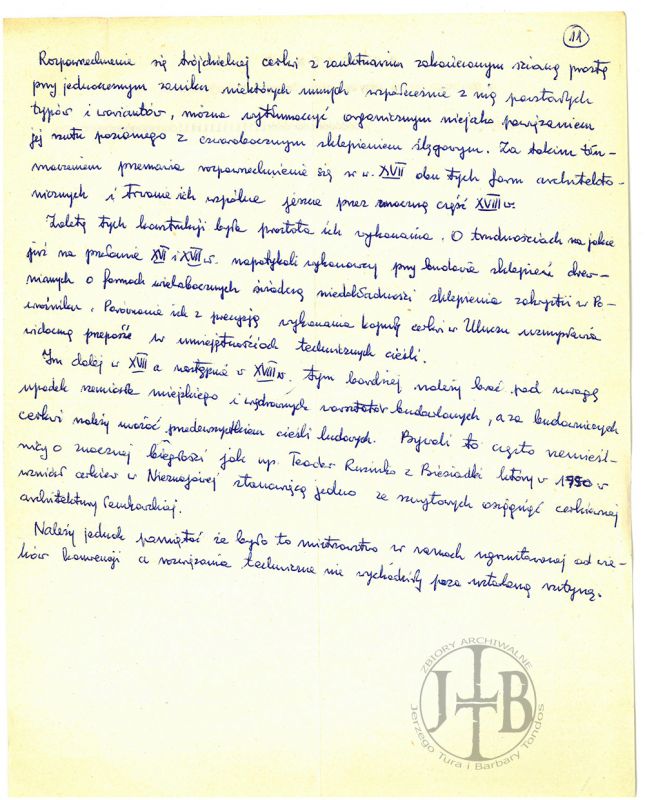 11
Rozpowszechnienie się trójdzielnej cerkwi z sanktuarium zakończonym ścianą prostą
przy jednoczesnym zaniku niektórych innych współcześnie z nią powstałych
typów i wariantów, można wytłumaczyć organicznym niejako powiązaniem
jej rzutu poziomego z czworobocznym sklepieniem ślęgowym. Za takim tłu-
maczeniem przemawia rozpowszechnienie się w w. XVII obu tych form architekto-
nicznych i trwanie ich wspólne jeszcze przez znaczną część XVIII w.
Zaletą tych konstrukcji była prostota ich wykonania. O trudnościach na jakie
już na przełomie XVI i XVII w. napotykali wykonawcy przy budowie sklepień drew-
nianych o formach wielobocznych świadczą niedokładności sklepienia zakrystii w Po-
wroźniku. Porównanie ich z precyzją wykonania kopuły cerkwi w Uluczu uzmysławia
widoczną przepaść w umiejętnościach technicznych cieśli.
Im dalej w XVII a następnie w XVIII w. tym bardziej należy brać pod uwagę
upadek rzemiosła miejskiego i wędrownych warsztatów budowlanych, a za budowniczych
cerkwi należy uważać przedewszystkiem cieśli ludowych. Bywali to często rzemieśl-
nicy o znacznej biegłości jak np. Teodor Rusinko z Biesiadki który w 1780 w
wzniósł cerkiew w Nieznajowej stanowiącą jedno ze szczytowych osiągnięć cerkiewnej
architektury Łemkowskiej.
Należy jednak pamiętać że było to mistrzostwo w ramach ugruntowanej od wie-
ków konwencji a rozwiązania techniczne nie wychodziły poza ustaloną rutynę.
ZBIORY ARCHIWALNE
JTB
Jerzego Tura i Barbary Tondos